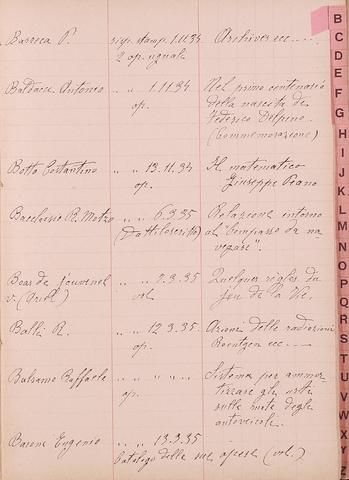 Barreca P. risp. stamp. 1.11.34 Archives ecc ....
2 op. uguali
Baldacci Antonio " " 1.11.34 Nel primo centenario
op. della nascita di
Federico Delpino
(Commemorazione)
Botto Costantino " " 13.11.34 Il matematico
op. Giuseppe Peano
Bacchisio R. Motzo " " 6.3.35 Relazione intorno
(Dattiloscritto) al "Compasso da na
vegare".
Bear de Jouvenel " " 7.3.35 Quelques règles du
v. vol. jeu de la Vie.
Balli R. " " 12.3.35 Azioni delle radiazioni
op. Roentgen ecc ....
Balsamo Raffaele " " " " Sistema per ammor-
op. tizzare gli urti
sulle ruote degli
autoveicoli.
Barone Eugenio " " 13.3.35
Catalogo delle sue opere (vol.)
B
C
D
E
F
G
H
I
J
K
L
M
N
O
P
Q
R
S
T
U
V
W
X
Y
Z